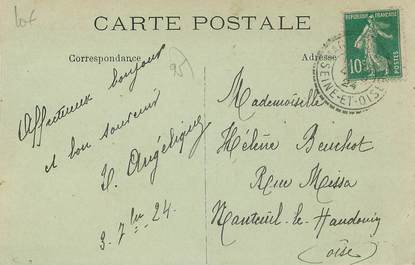 CARTE POSTALE
Correspondance
Adresse
95
RÉPUBLIQUE FRANÇAISE
10c
POSTES
24
SEINE-ET-OISE
Affectueux bonjour
et bon souvenir
Angélique
3. 7bre 24.
Mademoiselle
Hélène
Rue Missa
Nanteuil-le-Haudouin
(Oise)